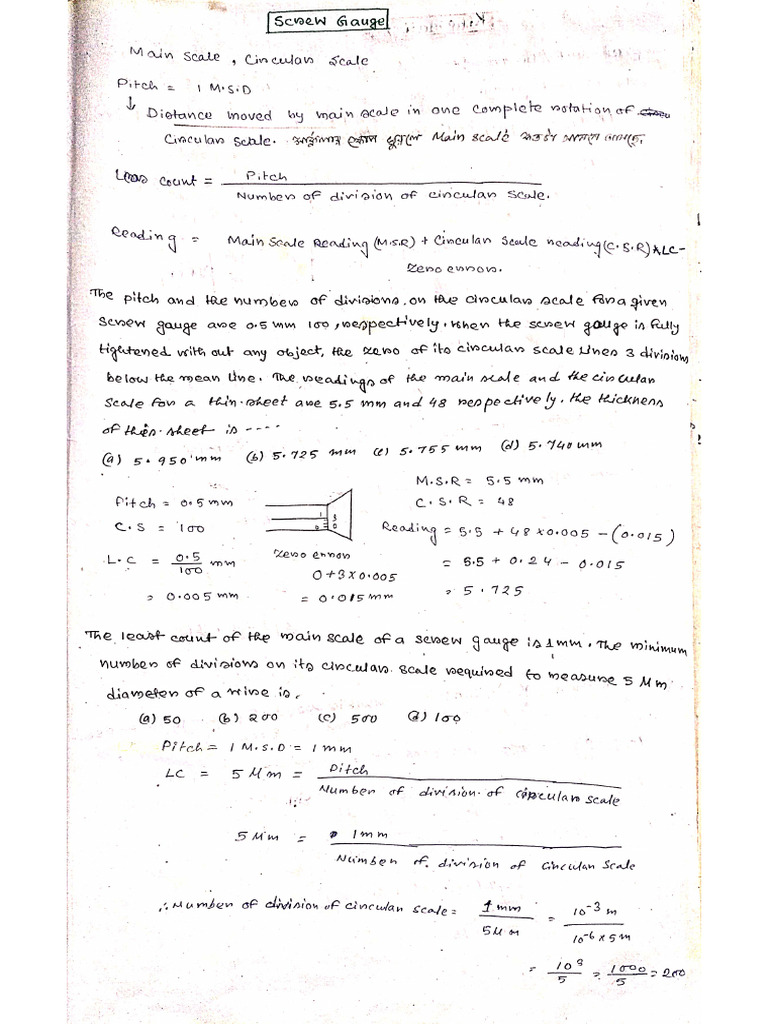 Screw Gauge
Main Scale, Circular Scale
Pitch = 1 M.S.D
↓ Distance moved by main scale in one complete rotation of
Circular Scale. Main scale
Less count = Pitch / Number of division of circular scale.
Reading = Main Scale Reading (M.S.R) + Circular Scale reading (C.S.R) x LC -
Zero error.
The pitch and the number of divisions, on the circular scale for a given
screw gauge are 0.5 mm 100, respectively, when the screw gauge is fully
tightened with out any object, the zero of its circular scale lines 3 divisions
below the mean line. The readings of the main scale and the circular
scale for a thin sheet are 5.5 mm and 48 respectively. the thickness
of this sheet is ----
(a) 5.950 mm (b) 5.725 mm (c) 5.755 mm (d) 5.740 mm
M.S.R = 5.5 mm
Pitch = 0.5 mm
C.S.R = 48
C.S = 100
Reading = 5.5 + 48 x 0.005 - (0.015)
L.C = 0.5/100 mm
Zero error
= 5.5 + 0.24 - 0.015
0 + 3 x 0.005
= 0.005 mm
= 0.015 mm
= 5.725
The least count of the main scale of a screw gauge is 1 mm. The minimum
number of divisions on its circular scale required to measure 5 Mm
diameter of a wire is.
(a) 50 (b) 200 (c) 500 (d) 100
Pitch = 1 M.S.D = 1 mm
LC = 5 Mm = Pitch / Number of division of circular scale
5 Mm = 1 mm / Number of division of circular scale
∴ Number of division of circular scale = 1 mm / 5 Mm = 10⁻³ m / 10⁻⁶ x 5 m
= 10³/5 = 1000/5 = 200